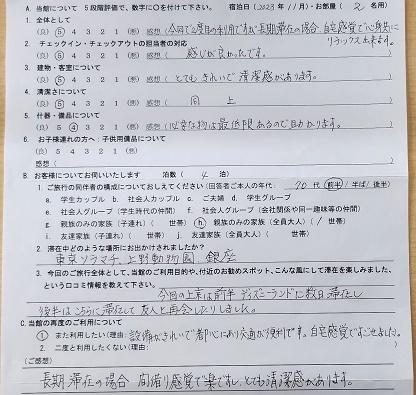 A. 当館について 5段階評価で、数字に○を付けて下さい。 宿泊日(2023年11月)・お部屋(2名用)
1. 全体として
(良) 5 4 3 2 1 (悪) 感想(今回で2度目の利用ですが長期滞在の場合、自宅感覚で心身共に
リラックス出来ます。
2. チェックイン・チェックアウトの担当者の対応
(良) 5 4 3 2 1 (悪) 感想(感じが良かったです。)
3. 建物・客室について
(良) 5 4 3 2 1 (悪) 感想(とてもきれいで清潔感があります。)
4. 清潔さについて
(良) 5 4 3 2 1 (悪) 感想(同上)
5. 什器・備品について
(良) 5 4 3 2 1 (悪) 感想(必要な物は最低限あるので助かります。)
6. お子様連れの方へ：子供用備品について
(良) 5 4 3 2 1 (悪)
感想( )
B. お客様についてお伺いいたします 泊数(4泊)
1. ご旅行の同伴者の構成についておしえてください(回答者ご本人の年代: 70代 前半/半ば/後半)
a. 学生カップル b. 社会人カップル c. ご夫婦 d. 学生グループ
e. 社会人グループ(学生時代の仲間) f. 社会人グループ(会社関係や同一趣味等の仲間)
g. 親族のみの家族(子連れ)( 世帯) h. 親族のみの家族(全員大人)(1世帯)
i. 友達家族(子連れ)( 世帯) j. 友達家族(全員大人)( 世帯)
2. 滞在中どのような場所にお出かけされましたか?
東京ソラマチ、上野動物園、銀座
3. 今回のご旅行全体として、当館のご利用目的や、付近のお勧めスポット、こんな風にして滞在を楽しみました、
という口コミ情報を教えて下さい。
今回の上京は前半ディズニーランドに数日滞在し
後半はこちらに滞在して友人と再会したりしました。
C. 当館の再度のご利用について
1. また利用したい(理由: 設備がきれいで都心にあり交通が便利です。自宅感覚ですごせました。)
2. 二度と利用したくない(理由: )
(ご感想)
長期滞在の場合 間借り感覚で楽ですし、とても清潔感があります。